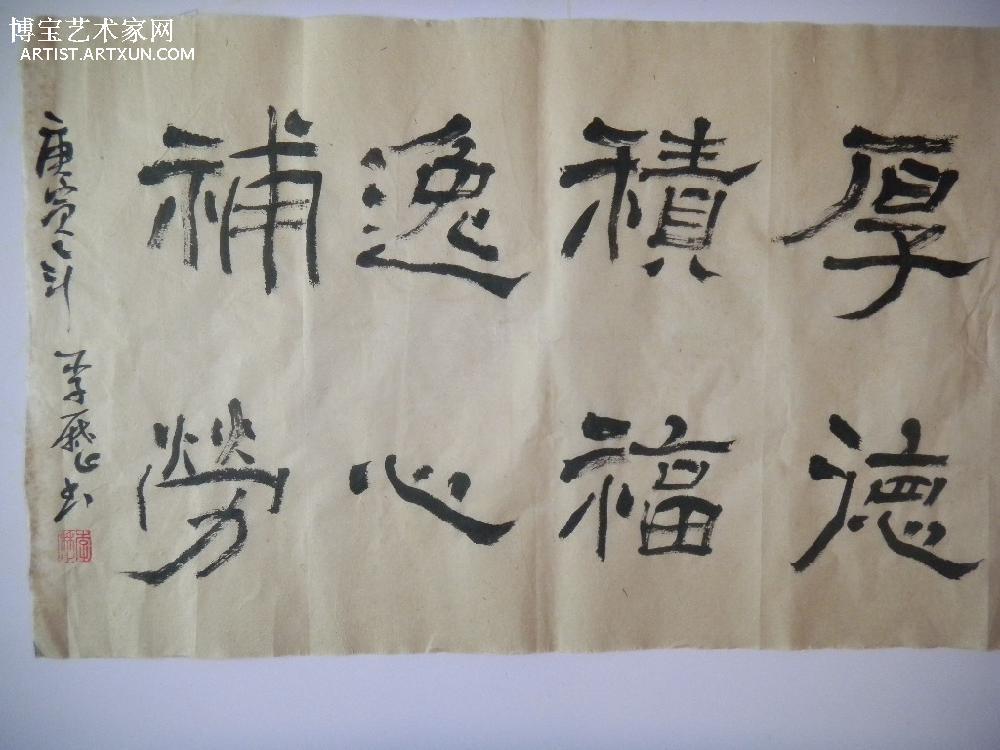 博宝艺术家网
ARTIST.ARTXUN.COM
厚德
積福
逸心
補勞
庚寅之秋 李 书